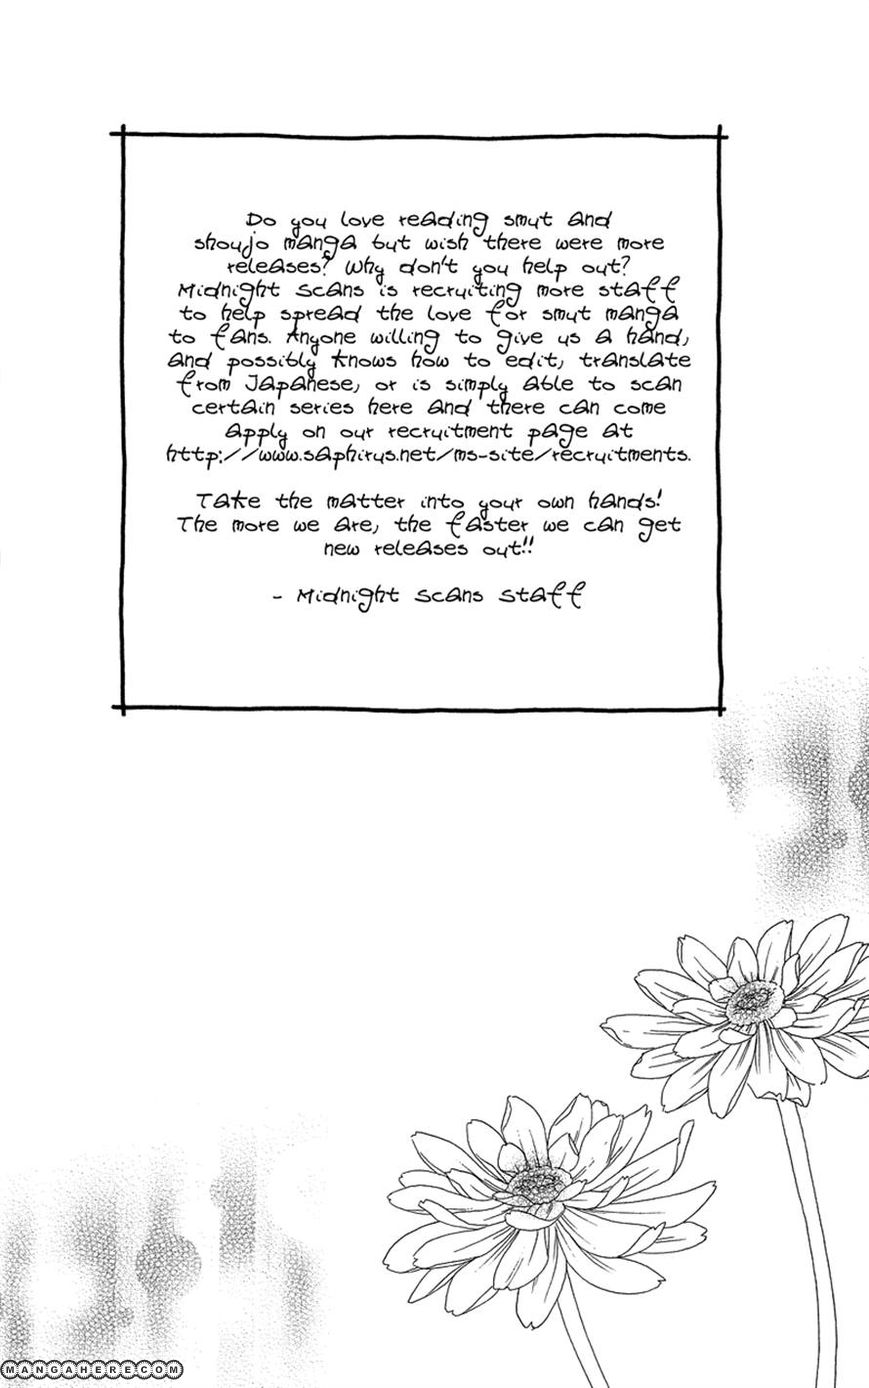 Do you love reading smut and
shoujo manga but wish there were more
releases? Why don't you help out?
Midnight Scans is recruiting more staff
to help spread the love for smut manga
to fans. Anyone willing to give us a hand,
and possibly knows how to edit, translate
from Japanese, or is simply able to scan
certain series here and there can come
apply on our recruitment page at
http://www.saphirus.net/ms-site/recruitments.
Take the matter into your own hands!
The more we are, the faster we can get
new releases out!!
- Midnight Scans Staff
MANGAHERE.COM